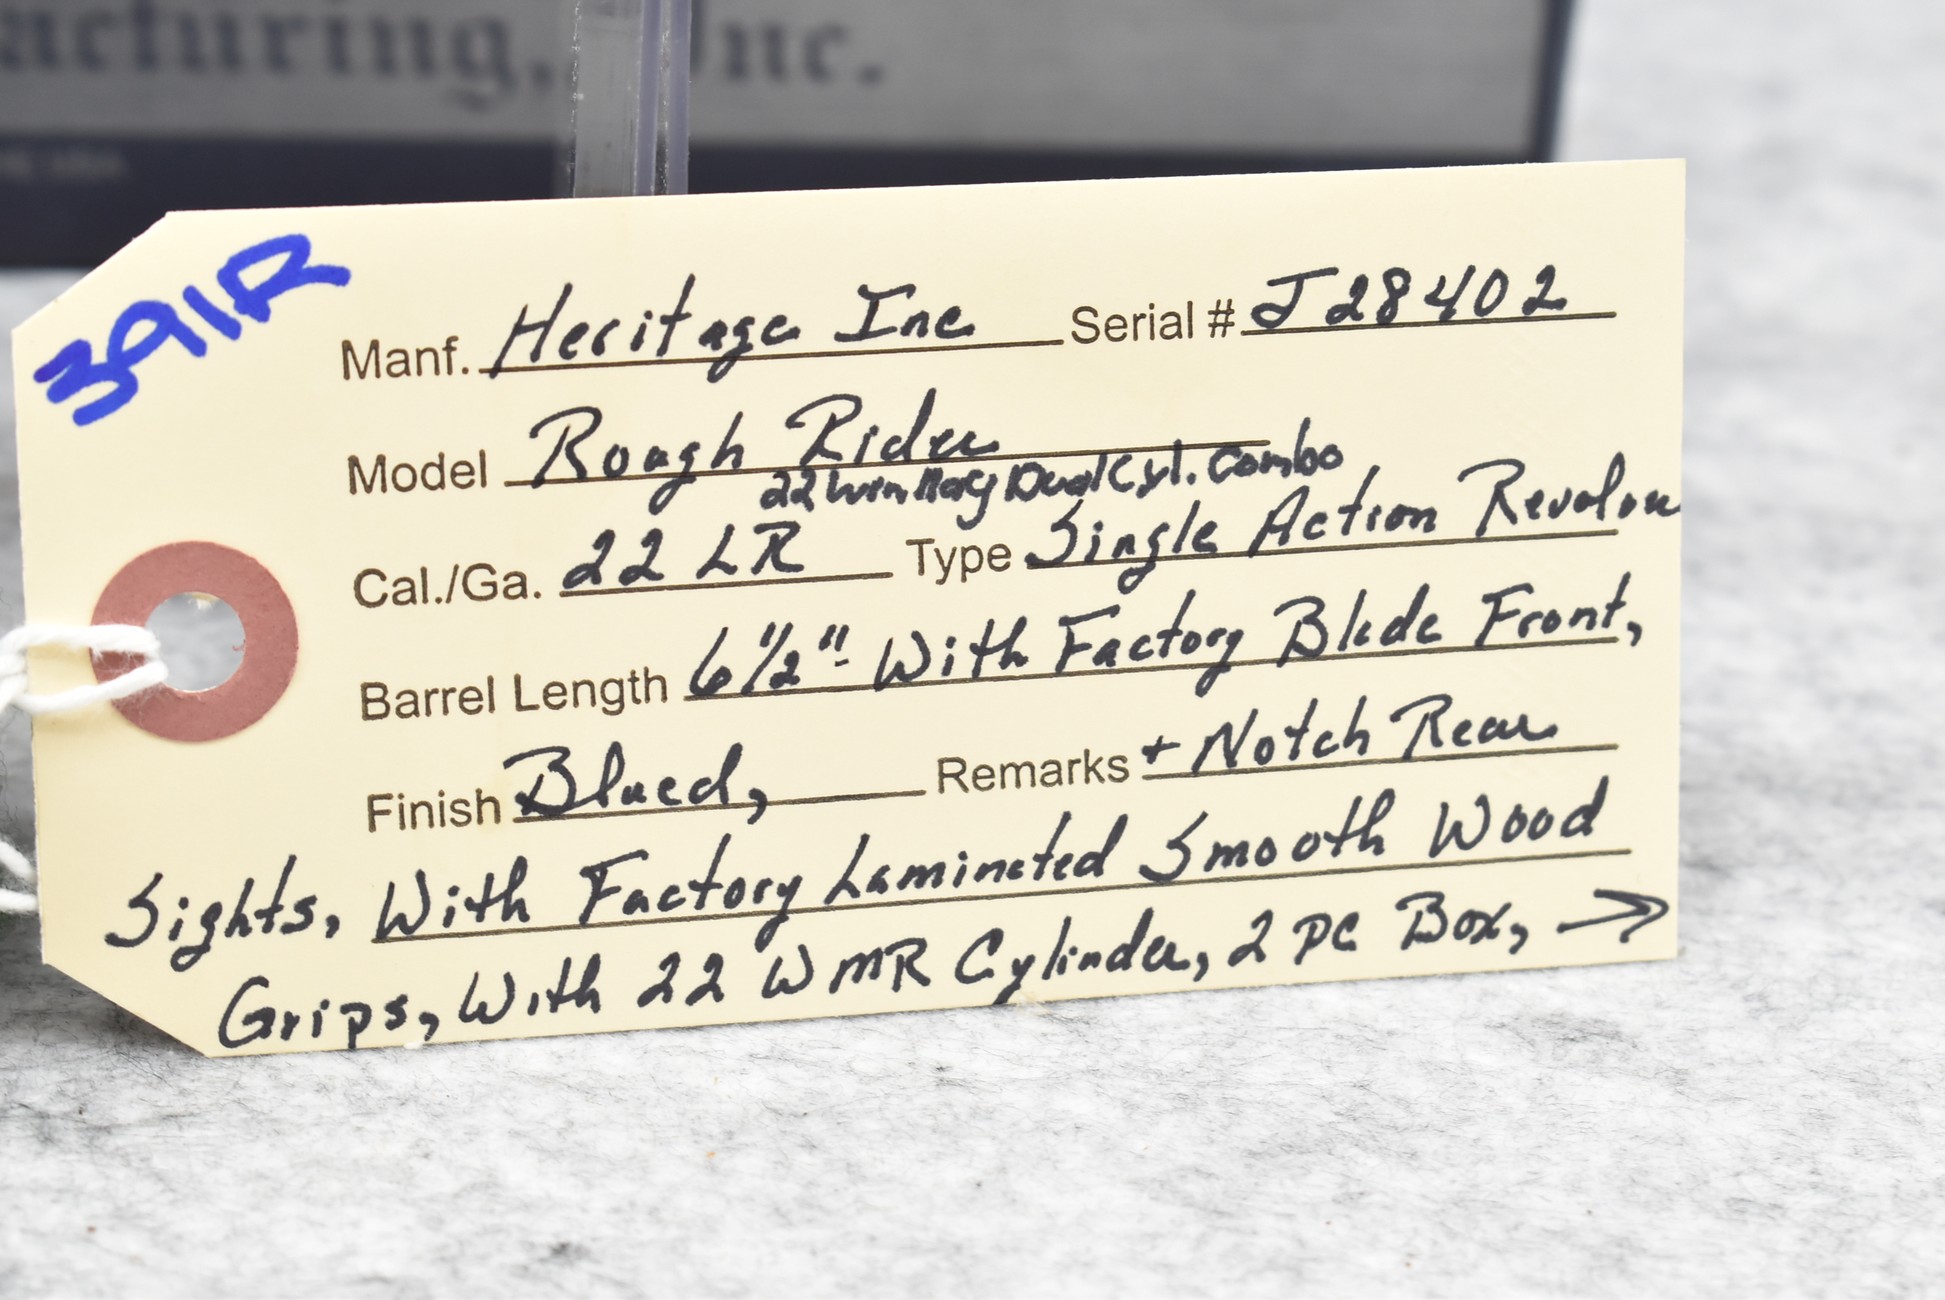 acturing, Inc.
391R
Manf. Heritage Inc Serial # J28402
Model Rough Rider
22 Win Mag Dual Cyl. Combo
Cal./Ga. 22 LR Type Single Action Revolver
Barrel Length 6 1/2" With Factory Blade Front,
Finish Blued, Remarks + Notch Rear
Sights, With Factory Laminated Smooth Wood
Grips, With 22 WMR Cylinder, 2 pc Box, →